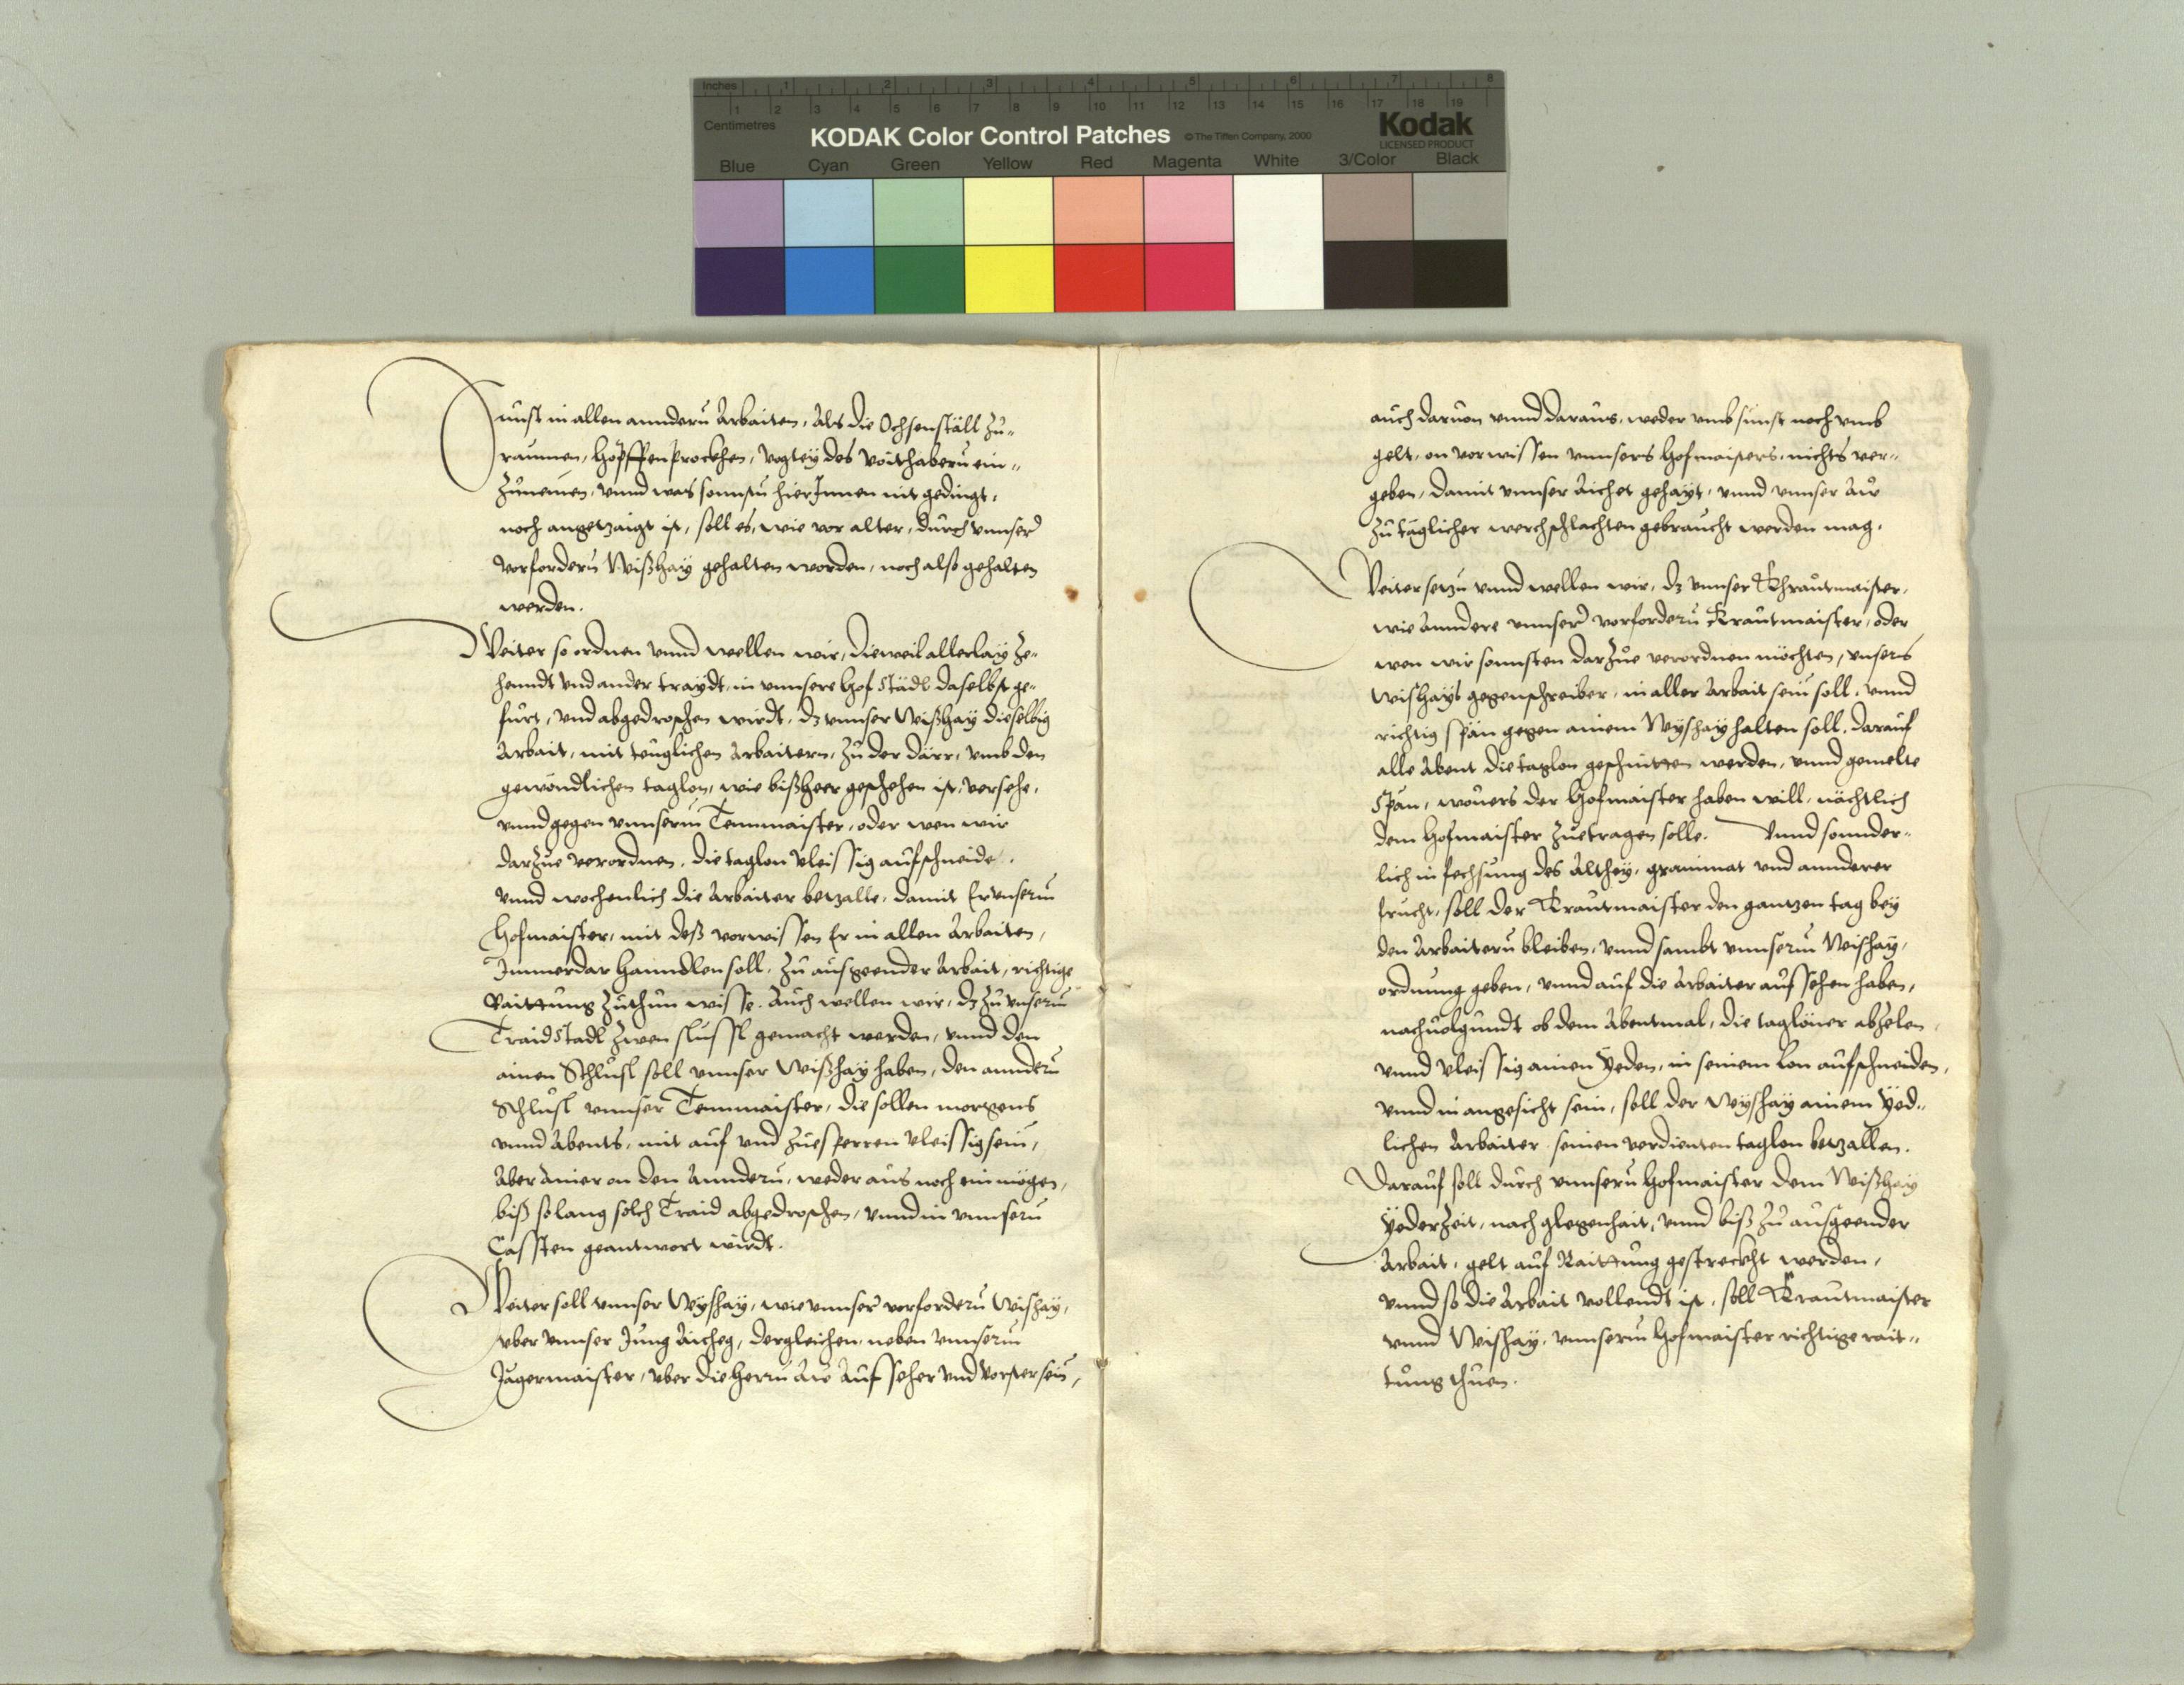 Inches 1 2 3 4 5 6 7 8
1 2 3 4 5 6 7 8 9 10 11 12 13 14 15 16 17 18 19
Centimetres
KODAK Color Control Patches © The Tiffen Company, 2000 Kodak
LICENSED PRODUCT
Blue Cyan Green Yellow Red Magenta White 3/Color Black
Sunst in allen anndern Arbaiten, Als die Ochsenställ zu-
raumen, Hopffen prockhen, Vogtey des Voithabern ein-
zunemen, vnnd was sonnsten hierInnen nit gedingt,
noch angetzaigt ist, soll es, wie vor alter, durch vnnser
vorfordern Wißhay gehalten worden, noch also gehalten
werden.
Weiter so ordnen vnnd wellen wir, dieweil allerlay Ze-
henndt vnd ander traydt, in vnnsere Hof Städl daselbst ge-
fürt, vnd abgedroschen wirdt, dz vnnser Wißhay dieselbig
Arbait, mit teuglichen Arbaitern, zu der Därr, vmb den
gewondlichen taglon, wie bißheer geschehen ist, versehe,
vnnd gegen vnnserm Tennmaister, oder wen wir
darzue verordnen, die taglon vleissig aufschneide,
vnnd wochenlich die Arbaiter betzalle, damit Er vnserm
Hofmaister, mit deß vorwissen Er in allen Arbaiten,
Immerdar hanndlen soll, zu ausgeender Arbait, richtige
Raittung zuthun wisse. Auch wellen wir, dz zu vnserm
Traidstadl zwen slussl gemacht werden, vnnd den
ainen Schlüsl soll vnnser Wißhay haben, den anndern
Schlüsl vnnser Tennmaister, die sollen morgens
vnnd Abents, mit auf vnd zuesperren vleissig sein,
Aber ainer on den Anndern, weder aus noch ein mögen,
biß solang solch Traid abgedroschen, vnnd in vnnsern
Cassten geantwort wirdt.
Weiter soll vnnser Wyshay, wie vnnser vorfordern Wishay,
vber vnnser Jung Aicheg, dergleichen neben vnnserm
Jägermaister, vber die Herrn Aw Aufseher vnd vorster sein,
auch daruon vnnd daraus, weder vmb sunst noch vmb
gelt, on vorwissen vnnsers Hofmaisters, nichts ver-
geben, damit vnnser Aichet gehayt, vnnd vnnser Aw
zu täglicher werchschlachten gebraucht werden mag.
Weiter setzn vnnd wellen wir, dz vnnser Khrautmaister,
wie anndere vnnser vorfordern Krautmaister, oder
wen wir sonnsten darzue verordnen möchten, vnsers
Wishays gegenschreiber, in aller Arbait sein soll, vnnd
richtig Spän gegen ainem Wyshay halten soll, darauf
alle Abent die taglon geschnitten werden, vnnd gemelte
Span, wouers der Hofmaister haben will, nächtlich
dem Hofmaister zuetragen solle. Vnnd sonnder-
lich in fechsung des Althey, grammat vnd annderer
frucht, soll der Krautmaister den gantzen tag bey
den Arbaitern bleiben, vnnd sambt vnnserm Weishay,
ordnung geben, vnnd auf die Arbaiter aufsehen haben,
nachuolgundt ob dem Abentmal, die taglöner abzelen,
vnnd vleissig ainen Yeden, in seinem lon aufschneiden,
vnnd in angesicht sein, soll der Wyshay ainem Yed-
lichen Arbaiter seinen verdienten taglon betzallen.
Darauf soll durch vnnsern Hofmaister dem Wißhay
Yederzeit, nach glegenhait, vnnd biß zu ausgeender
Arbait, gelt auf Raittung gestreckht werden,
vnnd so die Arbait vollendt ist, soll Krautmaister
vnnd Weishay, vnnserm Hofmaister richtige rait-
tung thuen.